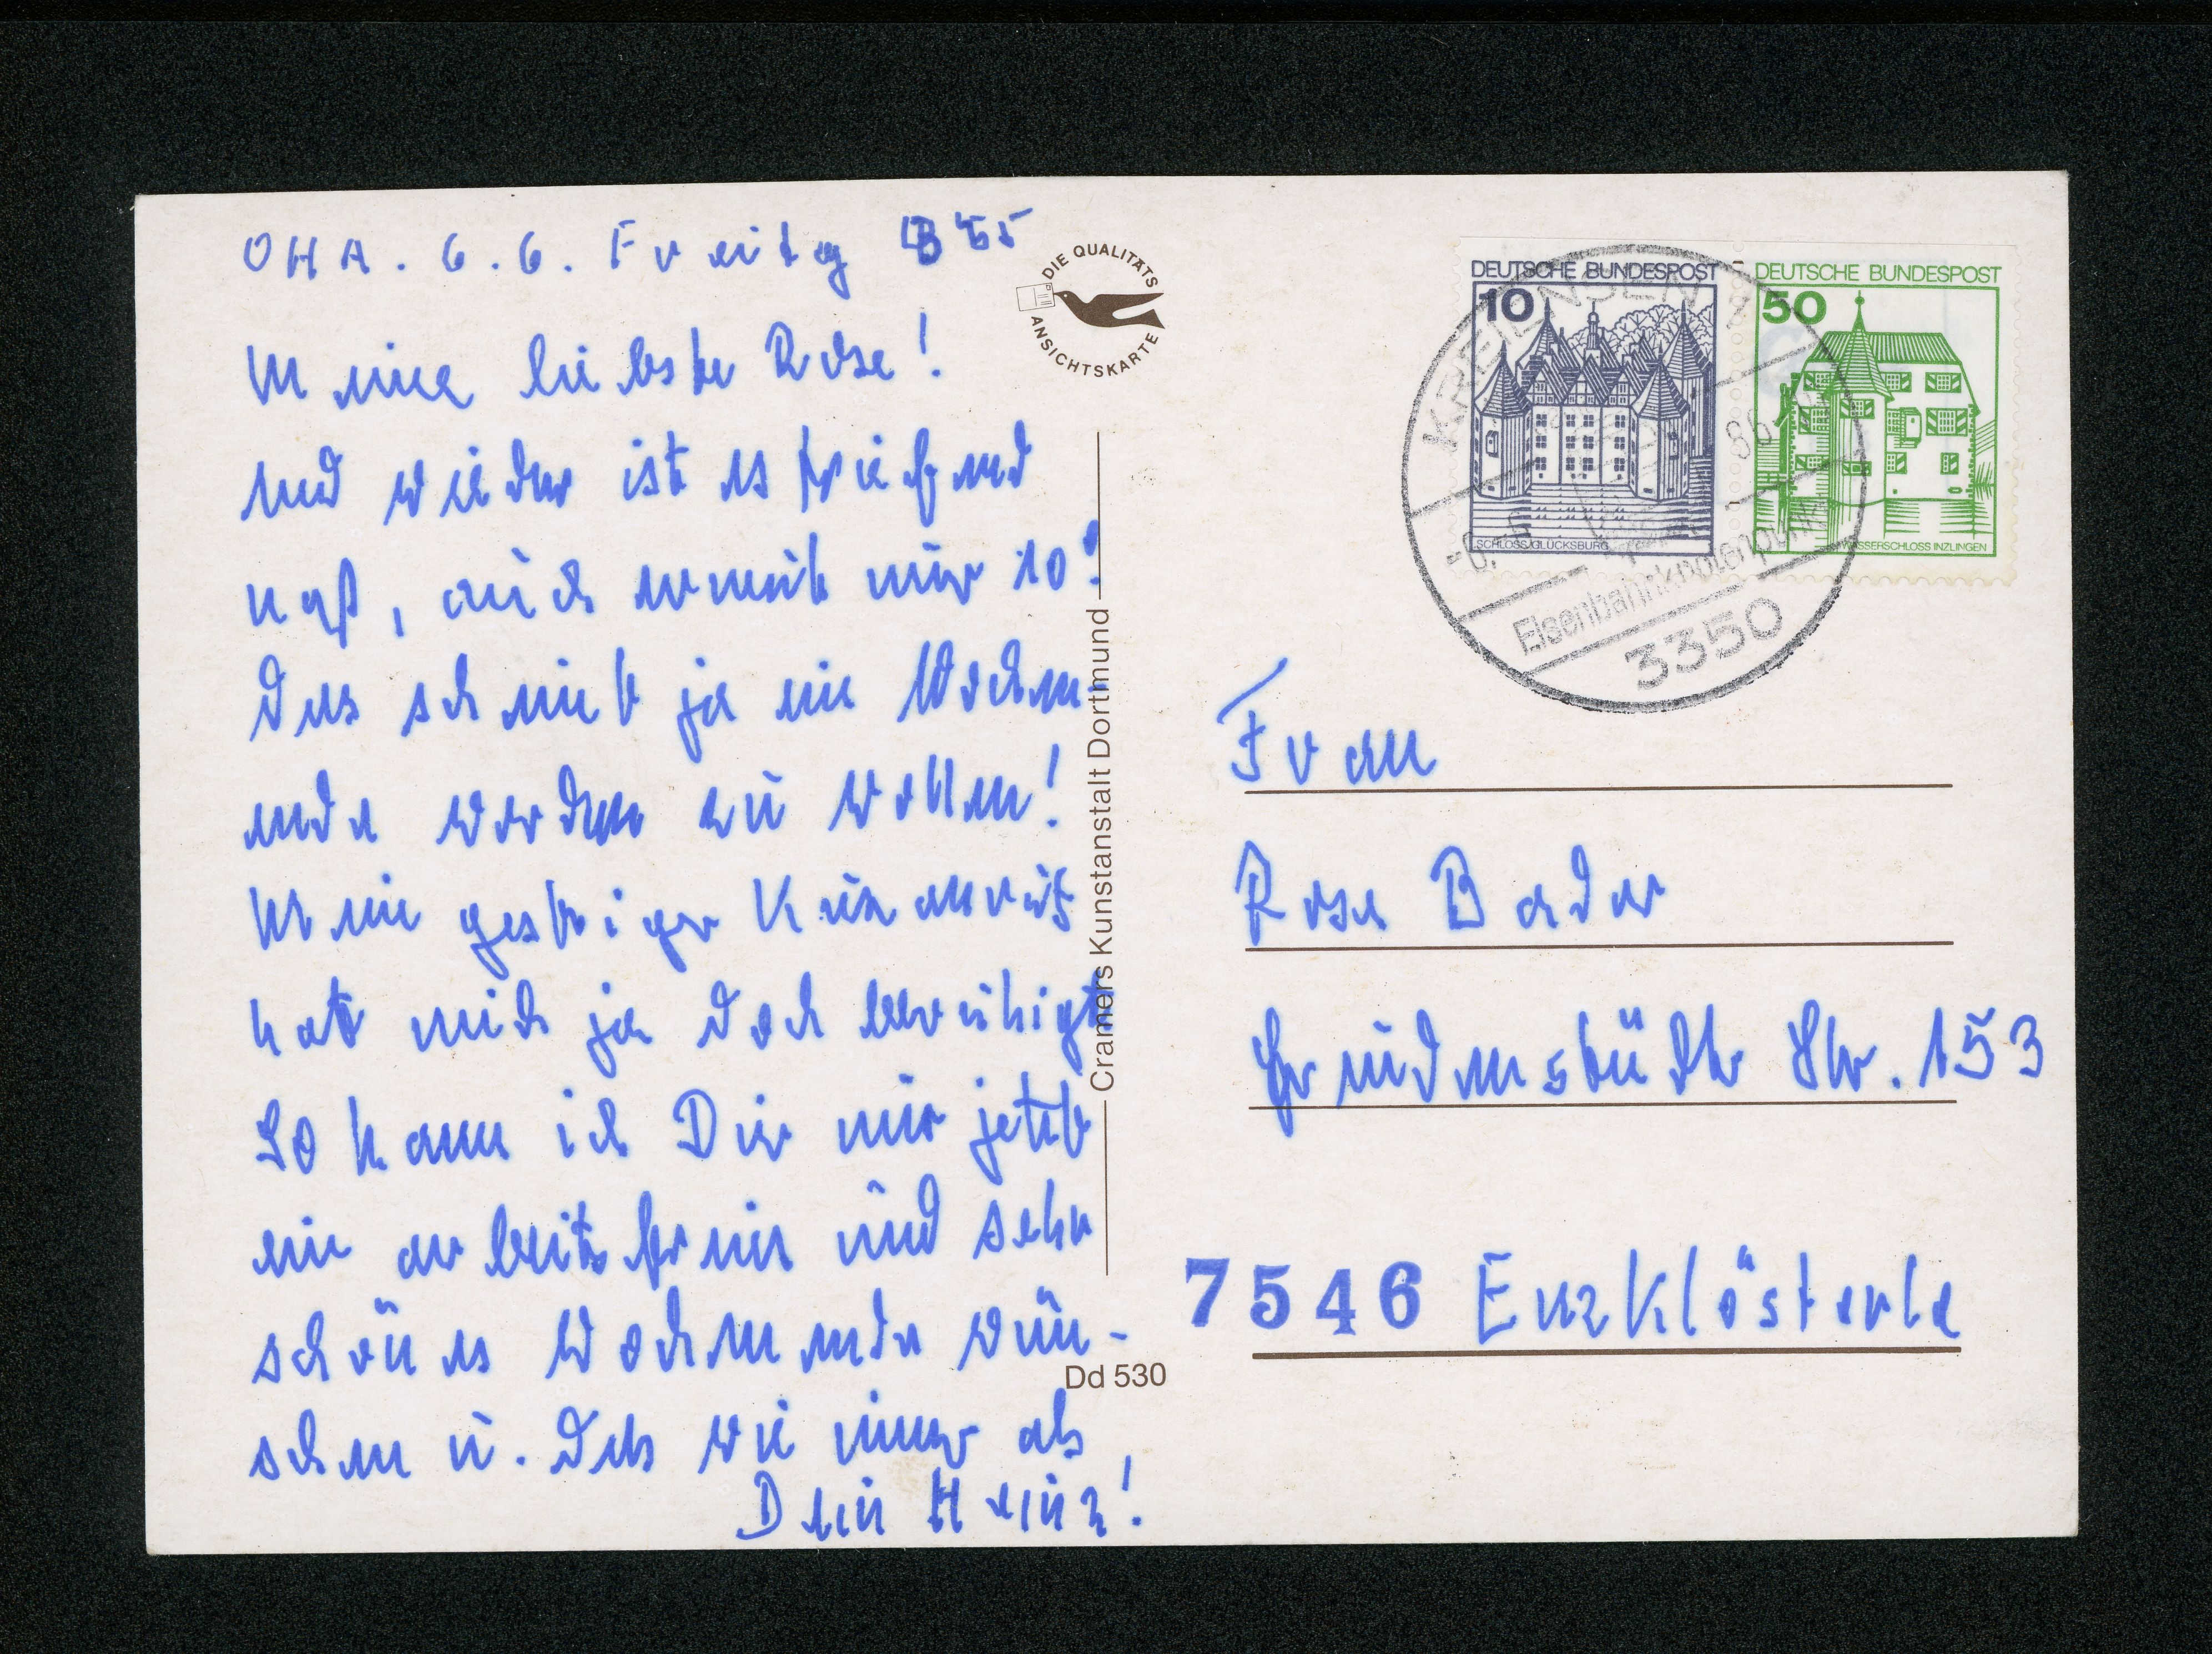 OHA. 6.6. Freitag 13 55
Meine liebste Rose!
und wieder ist es triefend
naß, auch erneut nur 10°
Das scheint ja ein Wochen-
ende werden zu wollen!
Mein gestriger Kuzanruf
hat mich ja doch beruhigt
So kann ich Dir nur jetzt
ein arbeitsfreies und sehr
schönes Wochenende wün-
schen u. Dels wie immer als
Dein Heinz!
DIE QUALITÄTS
ANSICHTSKARTE
Cramers Kunstanstalt Dortmund
Dd 530
DEUTSCHE BUNDESPOST
10
SCHLOSS GLÜCKSBURG
DEUTSCHE BUNDESPOST
50
WASSERSCHLOSS INZLINGEN
KREIENSEN 1
-6. 86
Eisenbahnknotenpunkt
3350
Frau
Rose Bader
Freudenstädter Str. 153
7546 Enzklösterle